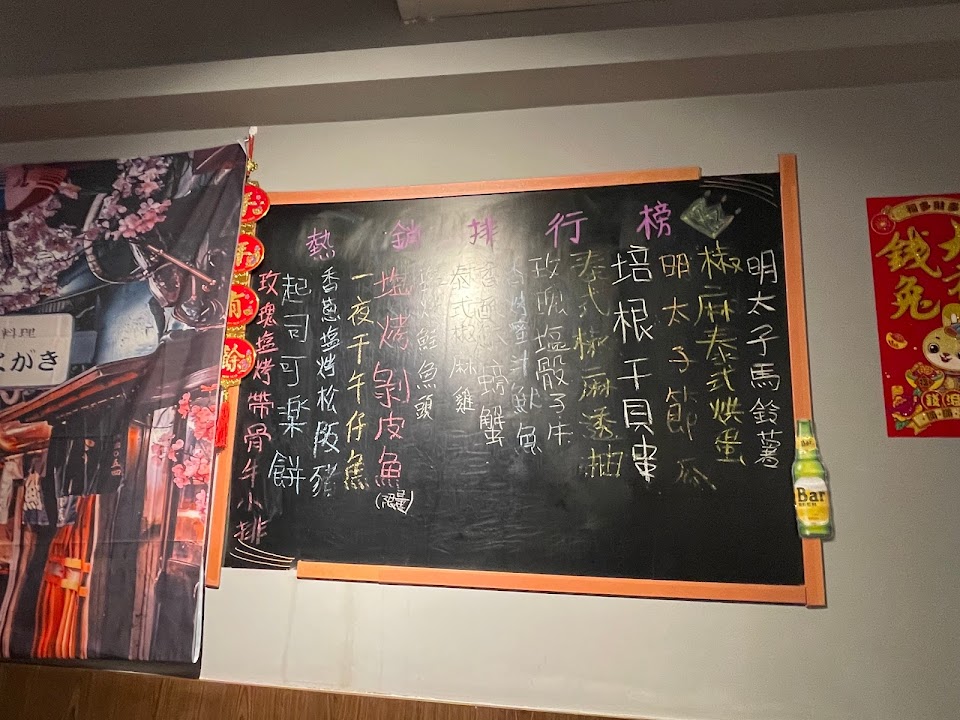 熱銷排行榜
明太子馬鈴薯
椒麻泰式烘蛋
明太子節瓜
培根干貝串
泰式椒麻透抽
玫瑰塩骰子牛
魷魚
螃蟹
泰式椒麻雞
塩烤鮭魚頭
塩烤剝皮魚
(限量)
一夜干午仔魚
香蔥塩烤松阪豬
起司可樂餅
玫瑰塩烤帶骨牛小排
年
有
餘
料理
がき
Bar
BEER
錢兔